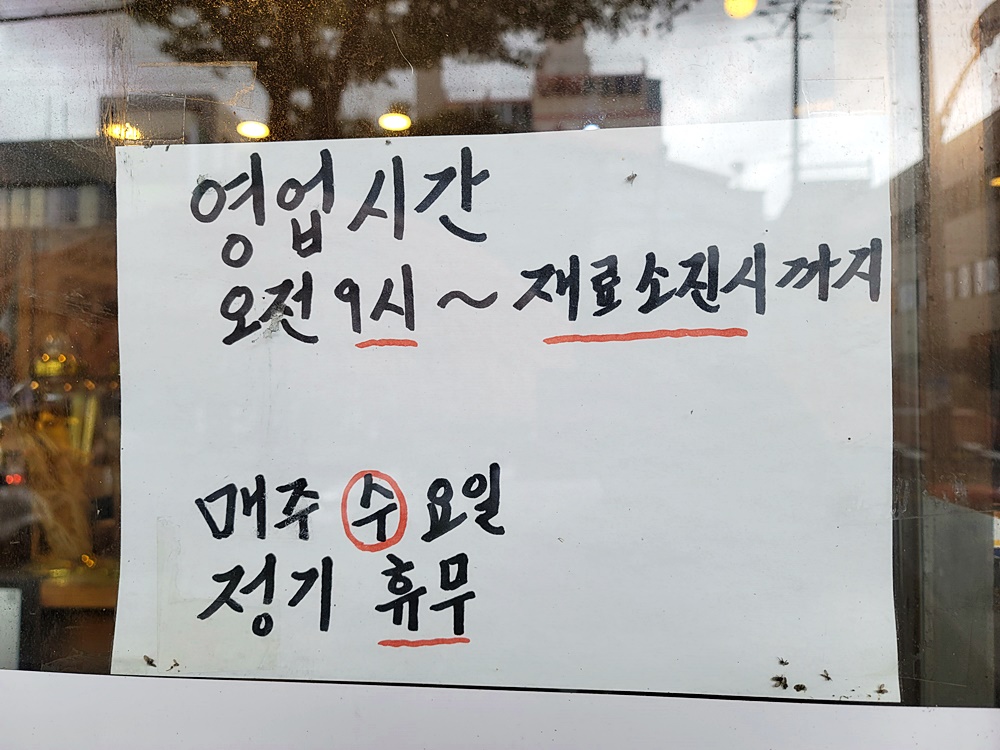 영업시간
오전 9시 ~ 재료소진시까지
매주 수요일
정기 휴무